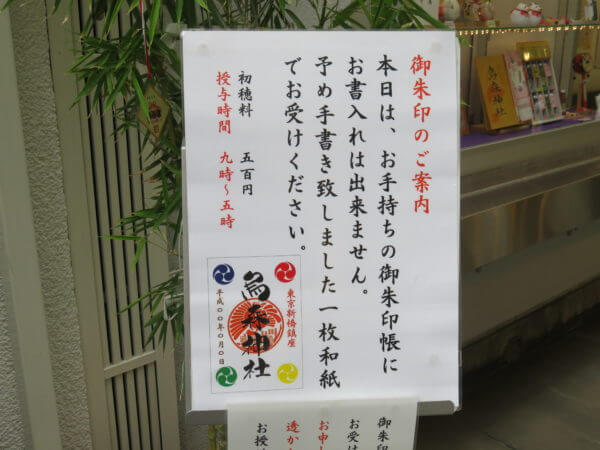 御朱印のご案内
本日は、お手持ちの御朱印帳に
お書入れは出来ません。
予め手書き致しました一枚和紙
でお受けください。
初穂料　五百円
授与時間　九時～五時
東京新橋鎮座
烏森神社
平成〇〇年〇月〇日
御朱印
お受け
お申し
透か
お授
烏森神社